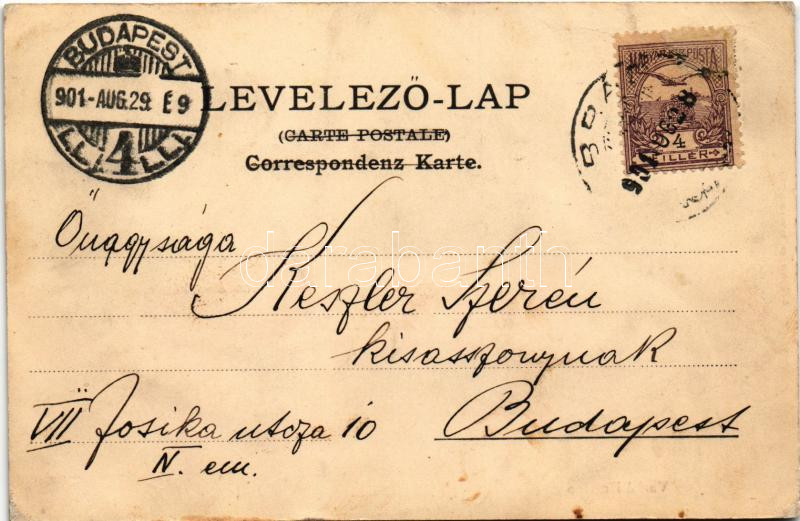 BUDAPEST
901-AUG.29. É 9
4
LEVELEZŐ-LAP
(CARTE POSTALE)
Correspondenz Karte.
MAGYAR KIR. POSTA
4
FILLÉR
Őnagysága
Keszler Szerén
kisasszonynak
VII Josika utcza 10
Budapest
IV. em.
darabanth